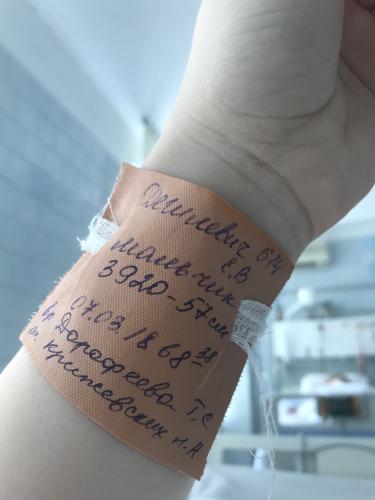 Дешневич 614
Е.В
мальчик
3920-57см
07.03.18 6 8 38
вр. Дорофеева Т.С
м. крижевских Н.А